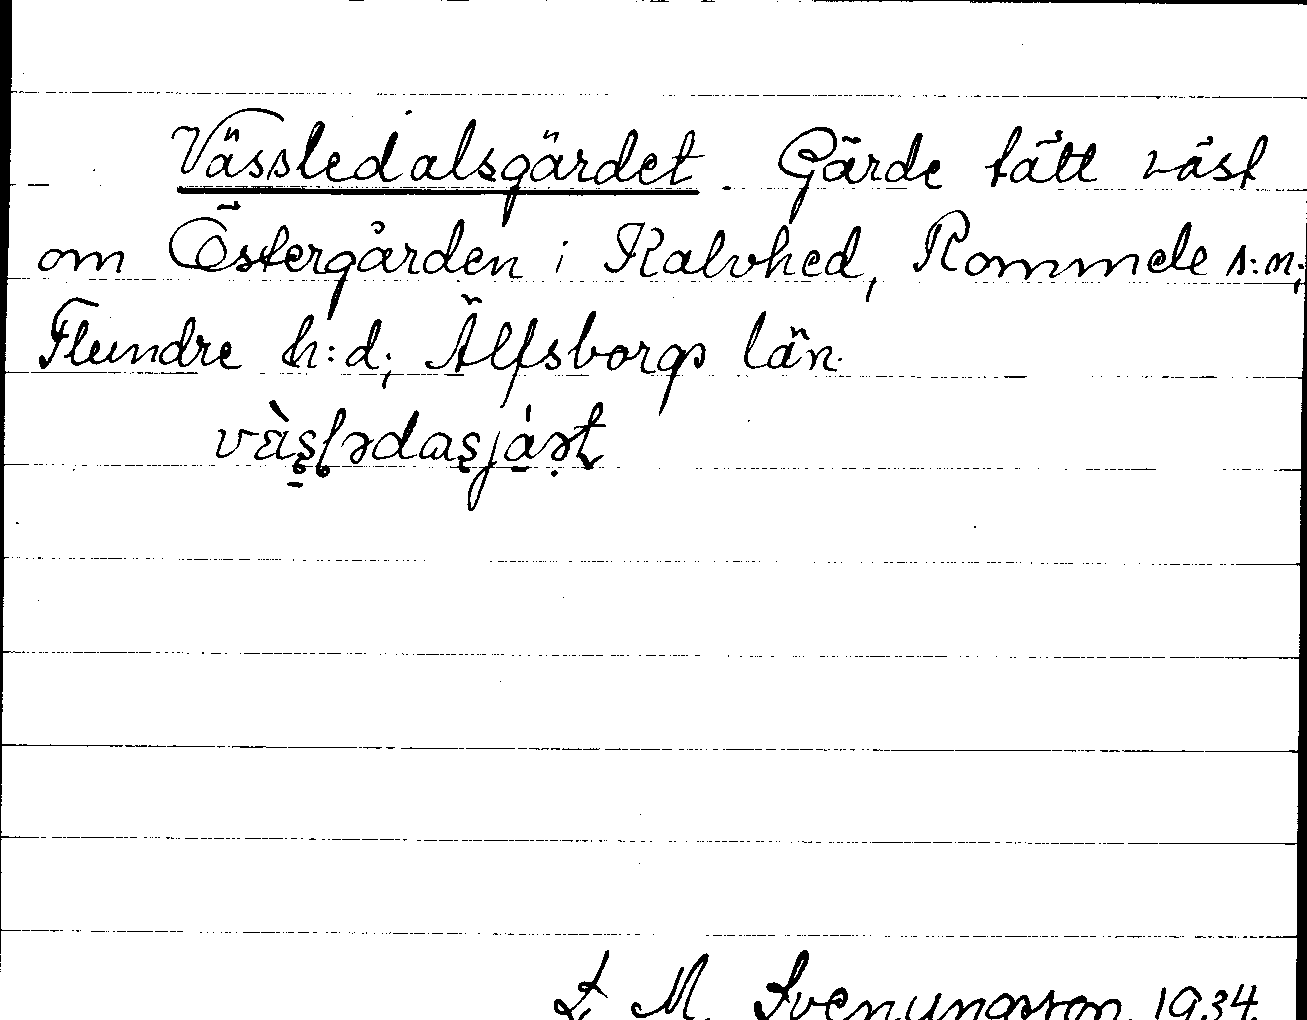 Vässledalsgärdet. Gärde tätt väst
om Östergården i Kalvhed, Rommele s:n;
Flundre h:d; Älfsborgs län.
M. Svenungsson 1934.